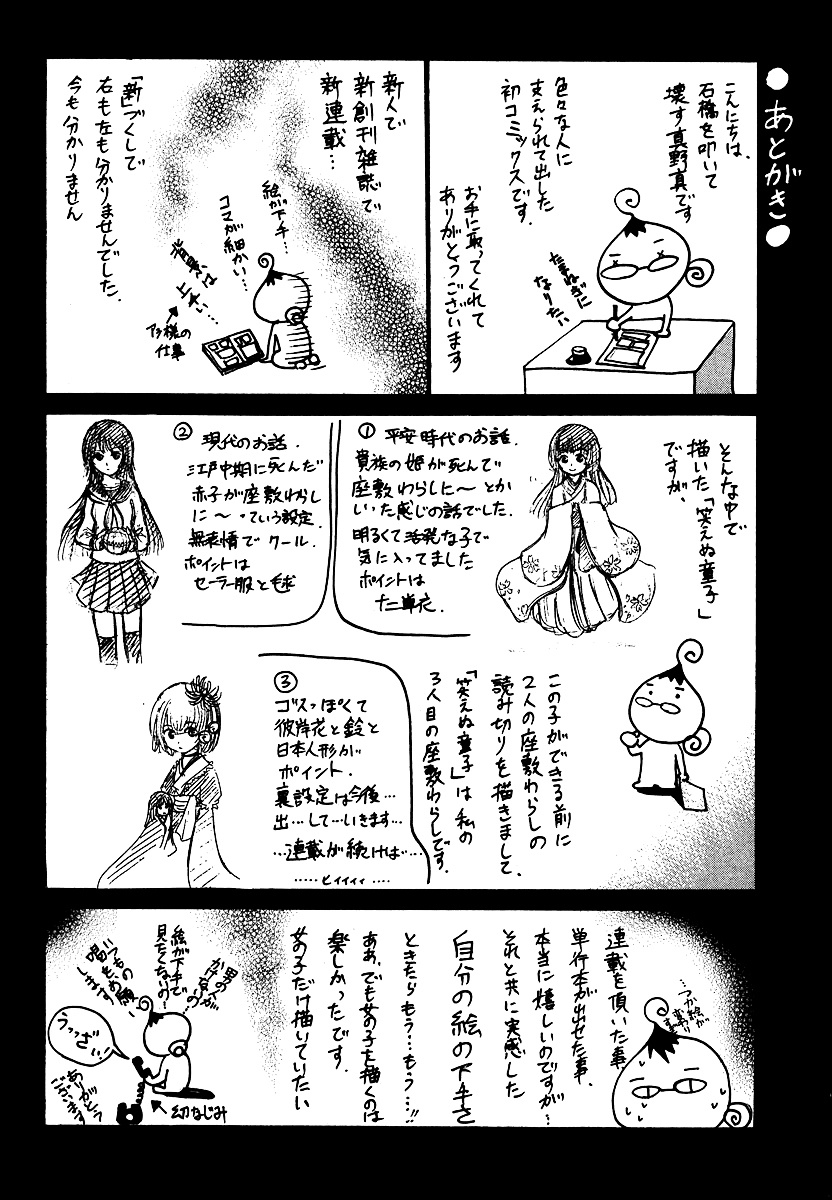 ●あとがき●
こんにちは、
石橋を叩いて
壊す真野真です
色々な人に
支えられて出した
初コミックスです。
お手に取ってくれて
ありがとうございます
たまねぎに
なりたい
新人で
新創刊雑誌で
新連載…
絵が下手…
コマが細かい…
背景は
上手い…
アシ様の
仕事
「新」づくしで
右も左も分かりませんでした。
今も分かりません
そんな中で
描いた「笑えぬ童子」
ですが、
① 平安時代のお話。
貴族の姫が死んで
座敷わらしに〜とか
いった感じの話でした
明るくて活発な子で
気に入ってました
ポイントは
十二単衣。
② 現代のお話。
江戸中期に死んだ
赤子が座敷わらし
に〜っていう設定
無表情でクール。
ポイントは
セーラー服と毬
この子ができる前に
2人の座敷わらしの
読み切りを描きまして、
「笑えぬ童子」は私の
3人目の座敷わらしです。
③
ゴスっぽくて
彼岸花と鈴と
日本人形が
ポイント。
裏設定は今後…
出…して…いきます…
…連載が続けば…
……ヒィィィィ……
連載を頂いた事、
単行本が出せた事、
本当に嬉しいのですが…
それと共に実感した
自分の絵の下手さ
ときたらもう…もう…!!
ああ、でも女の子を描くのは
楽しかったです。
女の子だけ描いていたい
…つか絵が…
男の人が
かけないの…
絵が下手で
見たくないの…
いつもの
うっざ…
ありがとう
ございます
幼なじみ